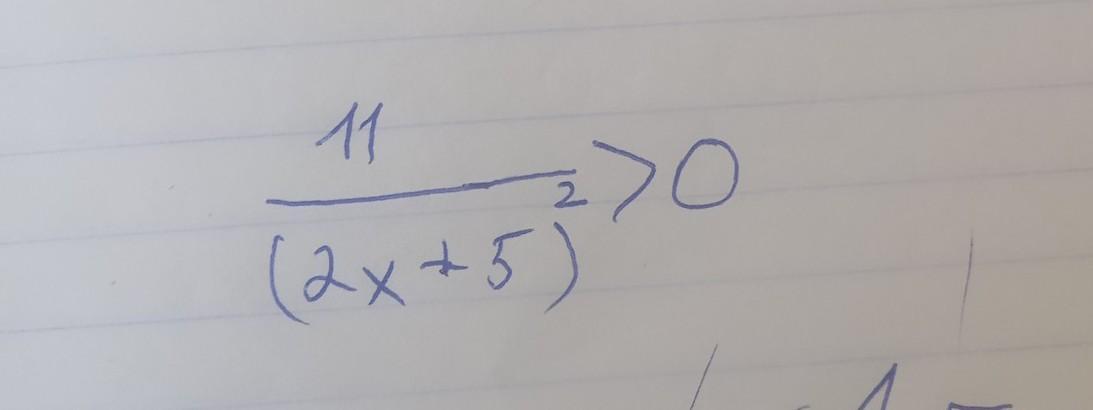 11
───── > 0
(2x + 5)²